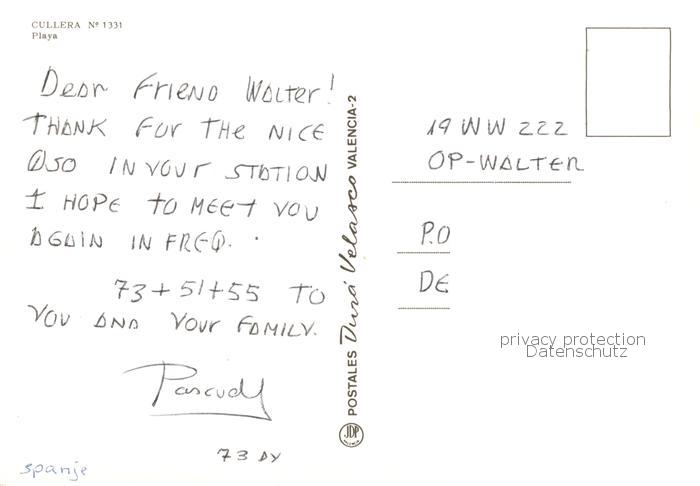 CULLERA Nº 1331
Playa
Dear Friend Walter!
THANK FOR THE NICE
QSO IN YOUR STATION
I HOPE TO MEET YOU
AGAIN IN FREQ.
73+51+55 TO
YOU AND YOUR FAMILY.
Pascual
73 DX
spanje
POSTALES Durá Velasco VALENCIA-2
JDP
19 WW 222
OP-WALTER
P.O
DE
privacy protection
Datenschutz